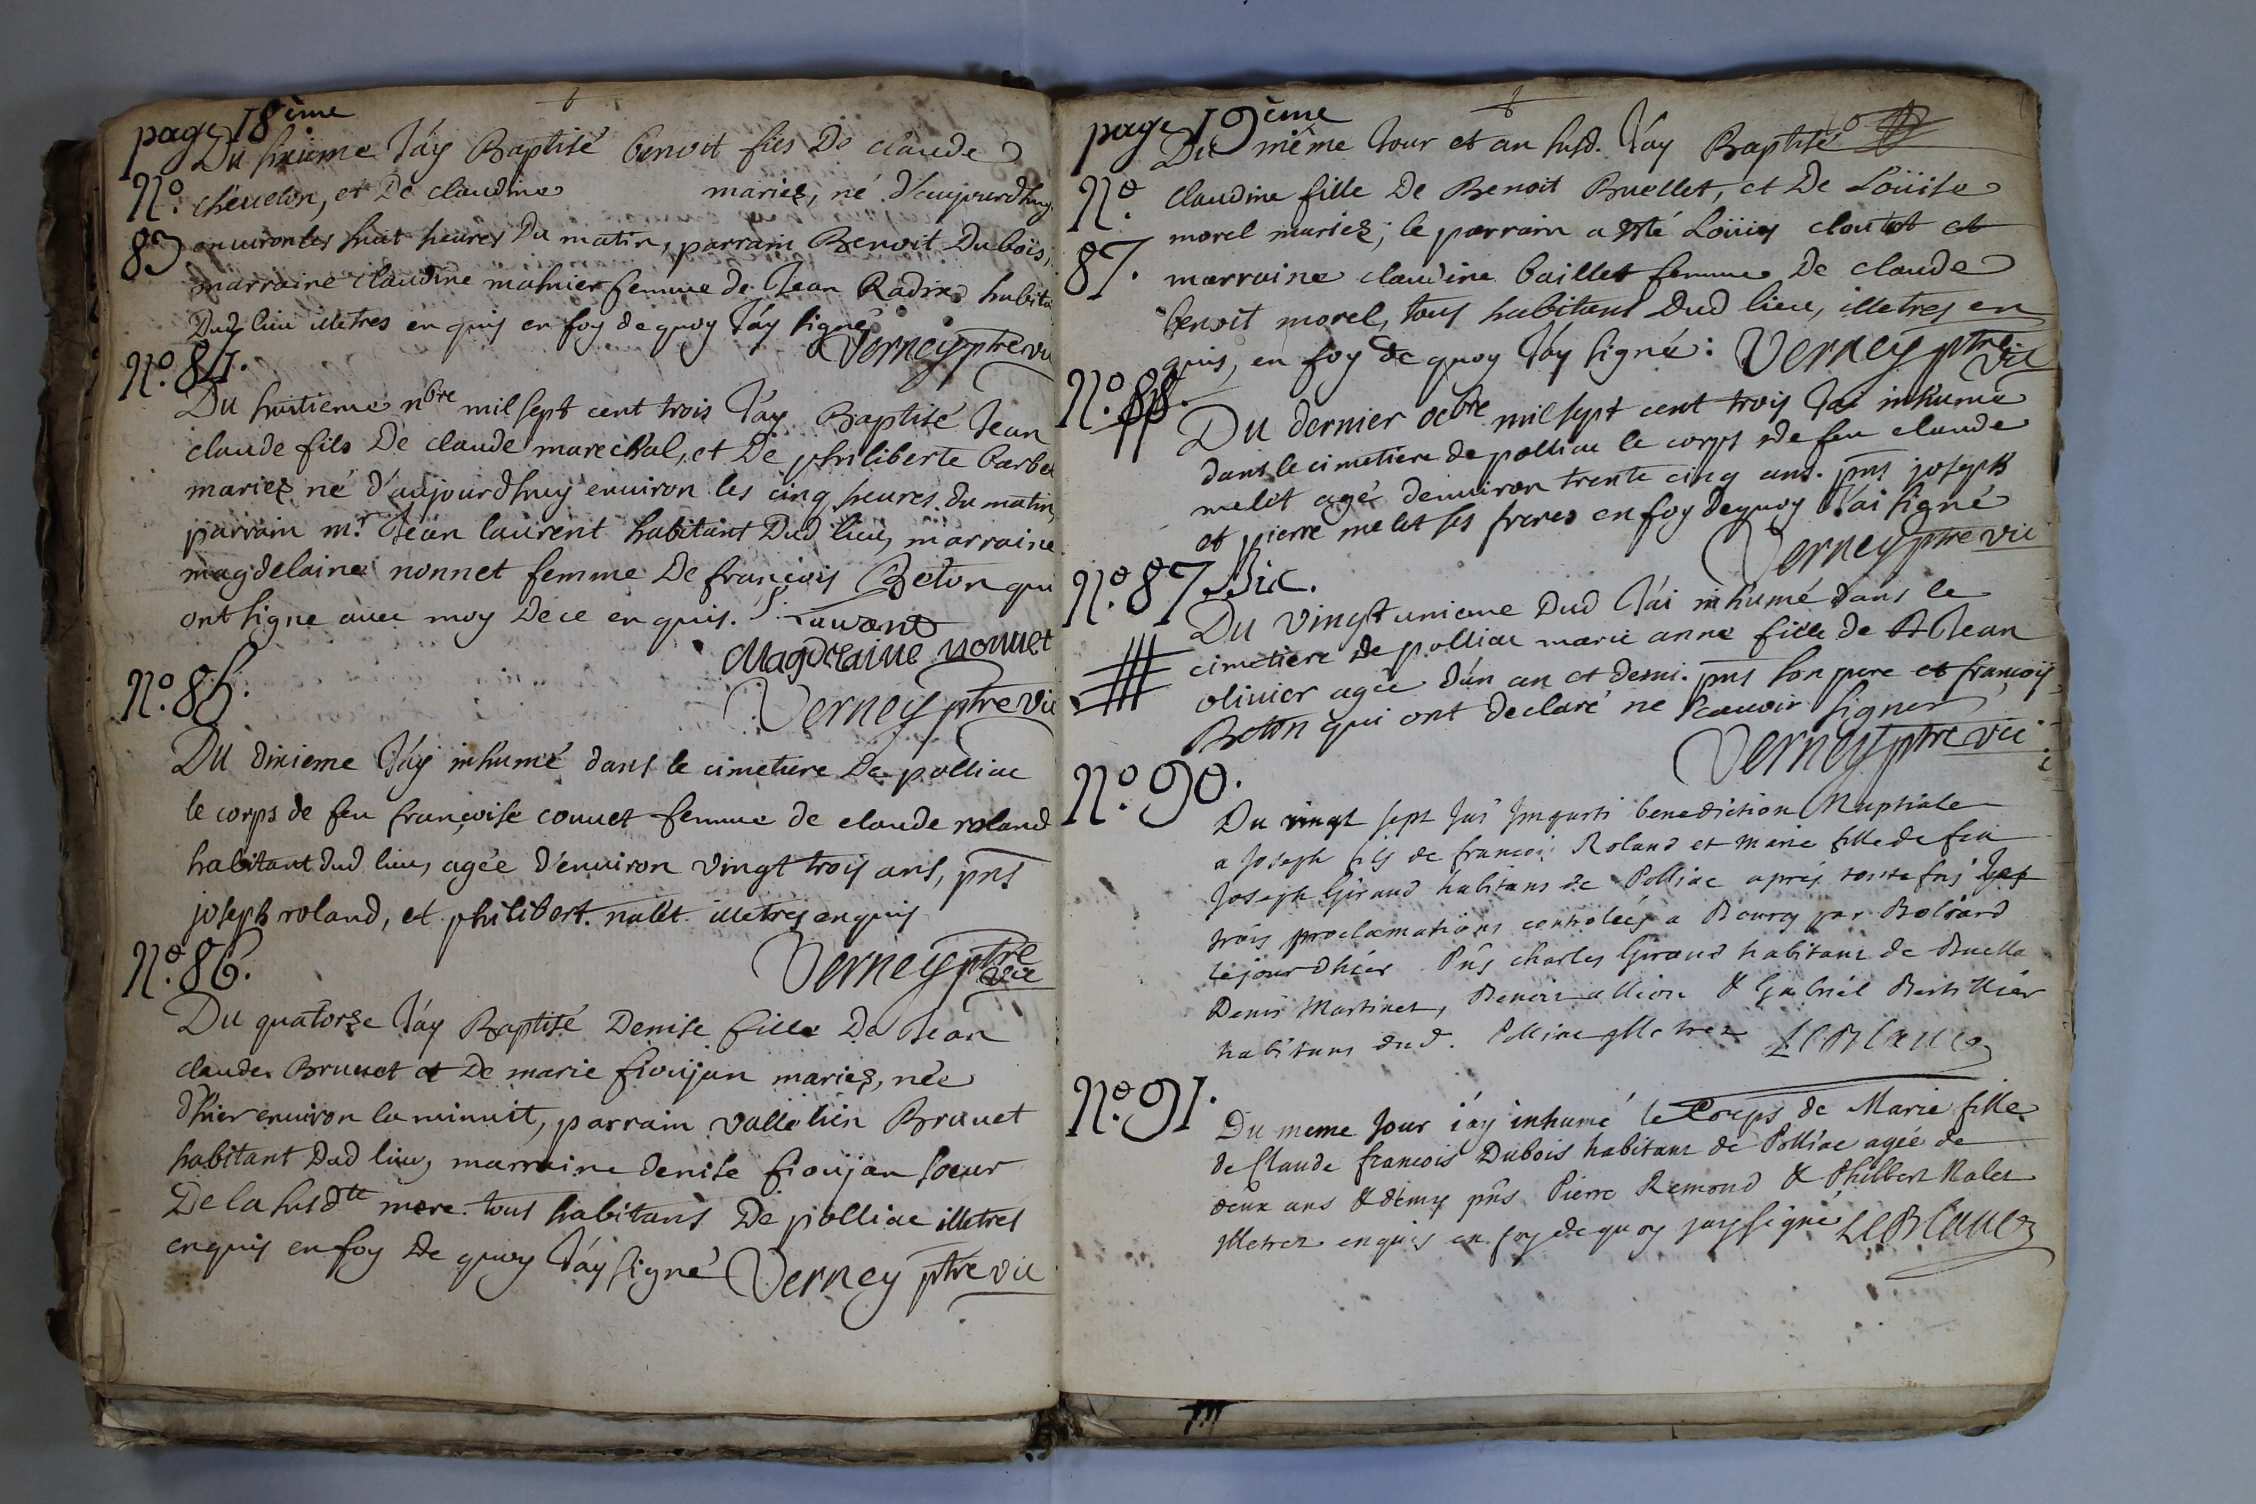 page 18ème
Du sixieme J'ay Baptisé benoit fils De claude
N°. cheuelon, et De claudine mariez, né d'aujourdhuy
83 enuiron les huit heures Du matin, parrain Benoit Dubois,
marraine claudine mahnier femme de Jean Radix habita
Dud lieu illetres enquis en foy de quoy J'ay signé
Verney ptre vic
N° 84.
Du huitieme nbre mil sept cent trois J'ay Baptisé Jean
claude fils De claude marechal, et De philiberte barbet
mariez né d'aujourdhuy enuiron les cinq heures du matin,
parrain mr. Jean laurent habitant Dud lieu, marraine
magdelaine nonnet femme De françois Boton qui
ont signe auec moy De ce enquis. J. Laurant
Magdelaine nonnet
N° 85.
Verney ptre vic
Du dixieme J'ay inhumé dans le cimetiere De polliac
le corps de feu françoise conuet femme de claude roland
habitant dud lieu, agée d'enuiron vingt trois ans, pns
joseph roland, et philibert nalet illetres enquis
Verney ptre vic
N° 86.
Du quatorze J'ay Baptisé Denise fille De Jean
claude Bruuet et De marie fioujan mariez, née
d'hier enuiron la minuit, parrain Bruuet
habitant Dud lieu, marraine denise fioujan soeur
De la susdte mere. tous habitans De polliac illetres
enquis en foy De quoy J'ay signé Verney ptre vic
page 19ème
Du même Jour et an susd. J'ay Baptisé
N° claudine fille De Benoit Buellet, et De Loüise
87. morel mariez; le parrain a esté Loüis cloutot et
marraine claudine baillet femme De claude
benoit morel, tous habitans Dud lieu, illetres en
quis, en foy de quoy J'ay signé: Verney ptre vic
N° 88.
Du dernier ocbre mil sept cent trois J'ai inhumé
dans le cimetiere de polliac le corps de feu claude
melet agé denuiron trente cinq ans. pns joseph
et pierre melet ses freres en foy de quoy J'ai signé
Verney ptre vic
N° 87 Bic.
Du vingt unieme Dud J'ai inhumé dans le
cimetiere de polliac marie anne fille de Jean
olinier agée d'un an et demi. pns son pere et françois
Boton qui ont declaré ne scauoir signer
Verney ptre vic
N° 90.
Du vingt sept J'ai Imparti benediction Nuptiale
a Joseph fils de francois Roland et Marie fille de feu
Joseph Giraud habitans de Polliac aprés toutefois les
trois proclamations controleés a Bourg par Boliard
le jour d'hier. Pñs Charles Giraud habitant de Buella
Denis Martinet, Benoit allion & Gabriel Berthillier
habitans dud. Polliac Illetrez LeBlanc
N° 91.
Du meme Jour j'ay inhumé le Corps de Marie fille
de Claude francois Dubois habitant de Polliac agée de
deux ans & demy pñs Pierre Remond & Philbert Nalet
Illetrez enquis en foy de quoy jay signé LeBlanc